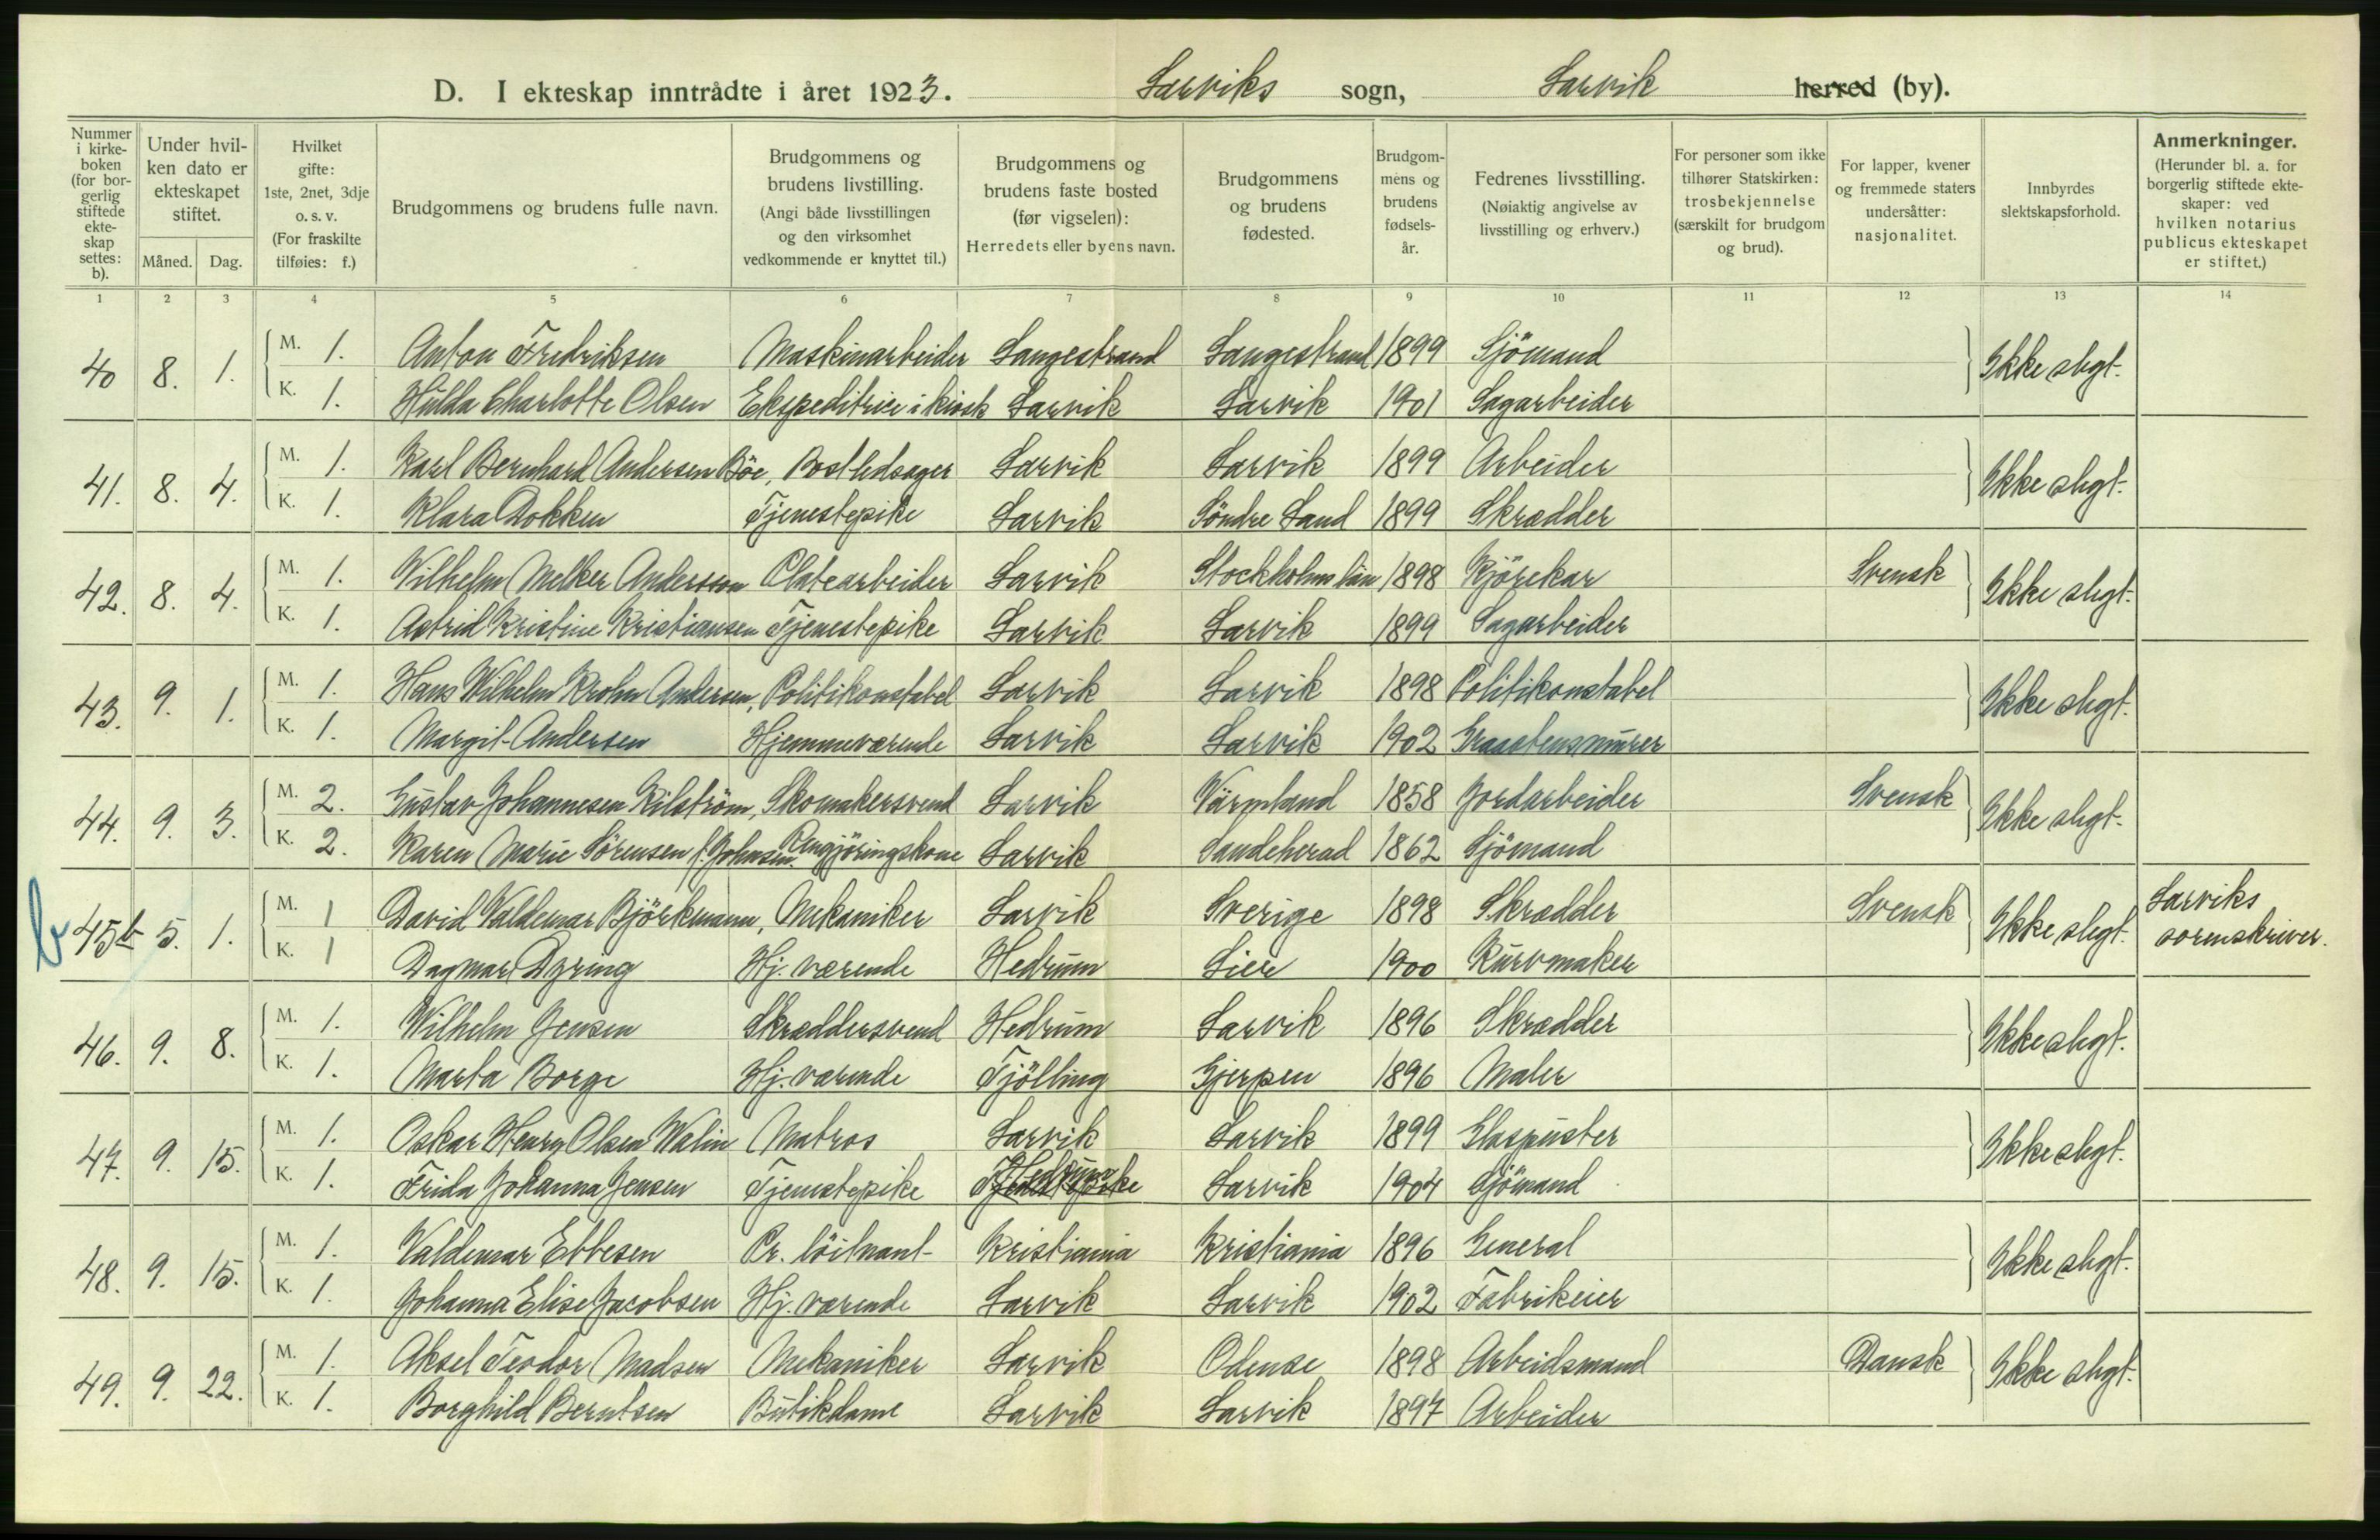 D. I ekteskap inntrådte i året 1923. Larviks sogn, Larvik herred (by).
Nummer i kirke-boken (for bor-gerlig stiftede ekte-skap settes: b).
Under hvil-ken dato er ekteskapet stiftet.
Måned. Dag.
Hvilket gifte: 1ste, 2net, 3dje o. s. v. (For fraskilte tilføies: f.)
Brudgommens og brudens fulle navn.
Brudgommens og brudens livstilling. (Angi både livsstillingen og den virksomhet vedkommende er knyttet til.)
Brudgommens og brudens faste bosted (før vigselen): Herredets eller byens navn.
Brudgommens og brudens fødested.
Brudgom-mens og brudens fødsels-år.
Fedrenes livsstilling. (Nøiaktig angivelse av livsstilling og erhverv.)
For personer som ikke tilhører Statskirken: trosbekjennelse (særskilt for brudgom og brud).
For lapper, kvener og fremmede staters undersåtter: nasjonalitet.
Innbyrdes slektskapsforhold.
Anmerkninger. (Herunder bl. a. for borgerlig stiftede ekte-skaper: ved hvilken notarius publicus ekteskapet er stiftet.)
1 2 3 4 5 6 7 8 9 10 11 12 13 14
40 8. 1. M. 1. Anton Fredriksen Maskinarbeider Langestrand Langestrand 1899 Sjömand Ikke slegt.
K. 1. Hulda Charlotte Olsen Ekspeditrice i kiosk Larvik Larvik 1901 Sagarbeider
41. 8. 4. M. 1. Karl Bernhard Andersen Böe, Postledsager Larvik Larvik 1899 Arbeider Ikke slegt.
K. 1. Klara Dokken Tjenestepike Larvik Söndre Land 1899 Skrædder
42. 8. 4. M. 1. Wilhelm Melker Andersson Platearbeider Larvik Stockholms län 1898 Kjörekar Svensk Ikke slegt.
K. 1. Astrid Kristine Kristiansen Tjenestepike Larvik Larvik 1899 Sagarbeider
43. 9. 1. M. 1. Hans Wilhelm Krohn Andersen, Politikonstabel Larvik Larvik 1898 Politikonstabel Ikke slegt.
K. 1. Margit Andersen Hjemmeværende Larvik Larvik 1902 Graastensmurer
44. 9. 3. M. 2. Gustav Johannesen Kilström, Skomakersvend Larvik Värmland 1858 Jordarbeider Svensk Ikke slegt.
K. 2. Karen Marie Sörensen f. Johnsen. Rengjöringskone Larvik Sandeherad 1862 Sjömand
b 45b 5. 1. M. 1 David Valdemar Björkmann, Mekaniker Larvik Sverige 1898 Skrædder Svensk Ikke slegt. Larviks sorenskriver.
K. 1 Dagmar Dyring Hj. værende Hedrum Lier 1900 Kurvmaker
46. 9. 8. M. 1. Wilhelm Jensen Skræddersvend Hedrum Larvik 1896 Skrædder Ikke slegt.
K. 1. Marta Borge Hj. værende Tjölling Gjerpen 1896 Maler
47. 9. 15. M. 1. Oskar Henry Olsen Walin Matros Larvik Larvik 1899 Glaspuster Ikke slegt.
K. 1. Frida Johanna Jensen Tjenestepike Hedrum Larvik 1904 Sjömand
48. 9. 15. M. 1. Valdemar Ebbesen Pr. löitnant Kristiania Kristiania 1896 General Ikke slegt.
K. 1. Johanna Elise Jacobsen Hj. værende Larvik Larvik 1902 Fabrikeier
49. 9. 22. M. 1. Aksel Teodor Madsen Mekaniker Larvik Odense 1898 Arbeidsmand Dansk Ikke slegt.
K. 1. Borghild Berntsen Butikdame Larvik Larvik 1897 Arbeider